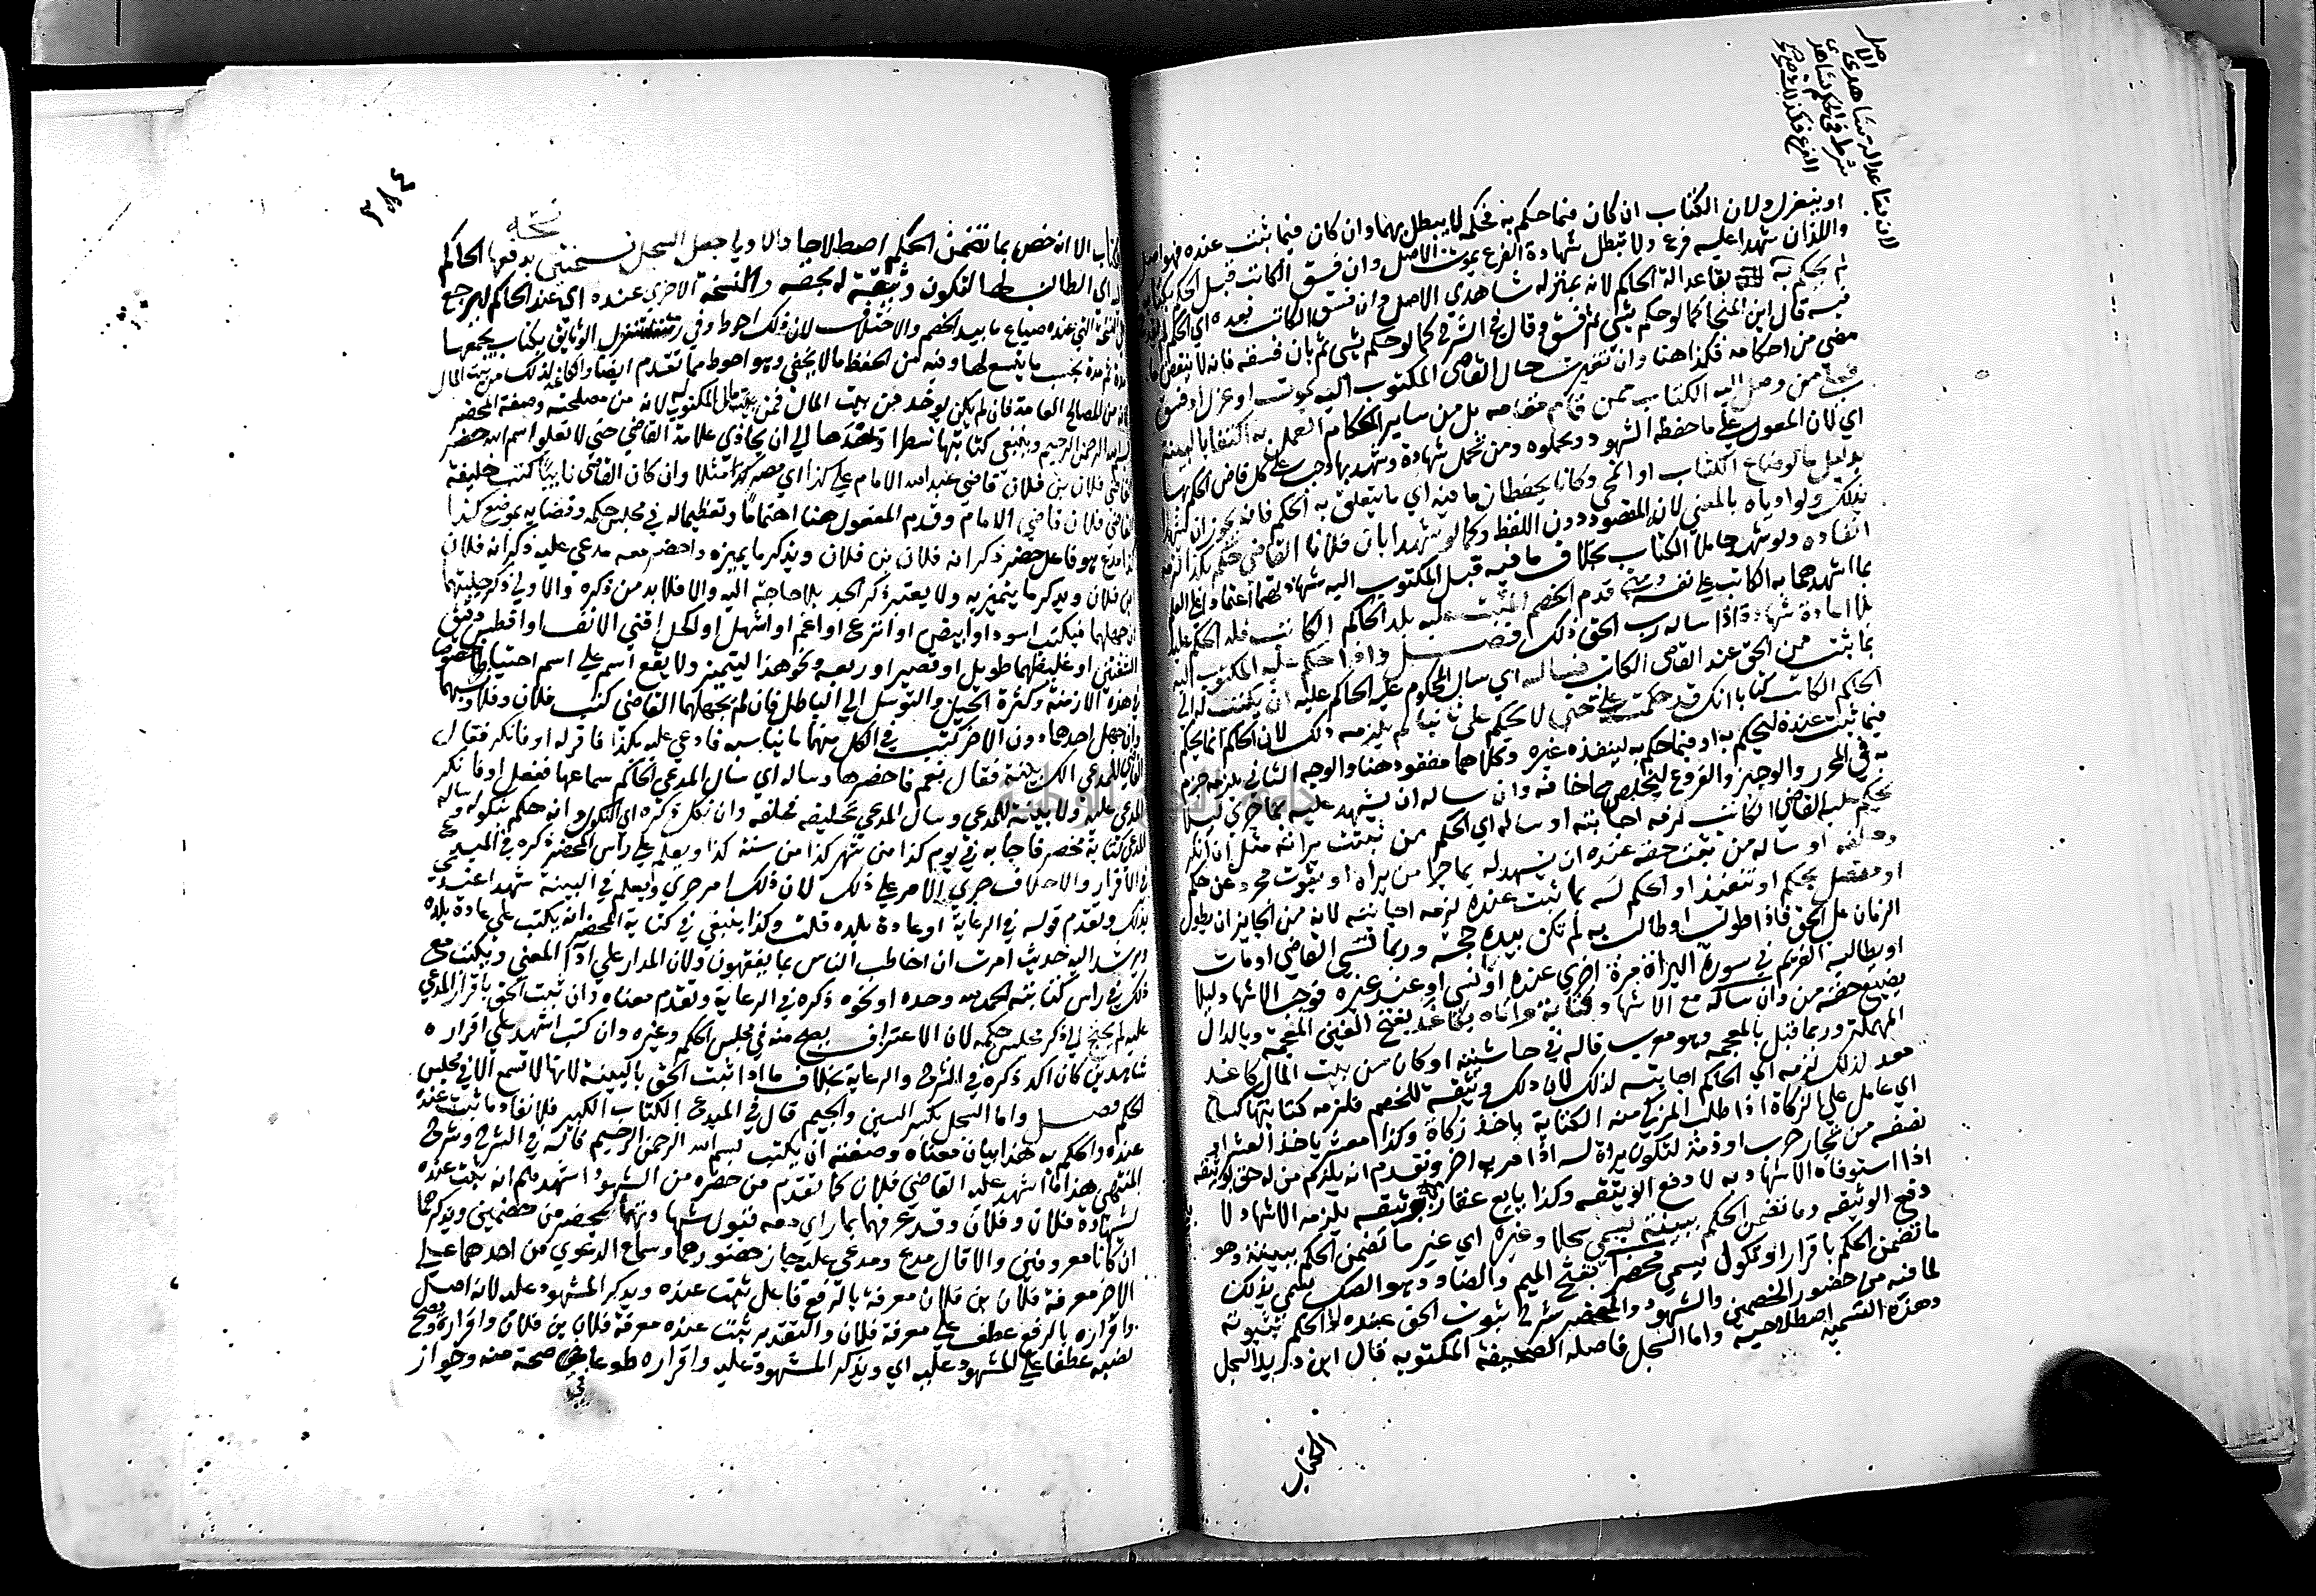 او ينعزل ولان الكتاب ان كان فيما حكم به فحكمه لا يبطل بهما وان كان فيما ثبت عنده فهو اصل
واللذان شهدا عليه فرع ولا تبطل شهادة الفرع بموت الاصل وان فسق الكاتب قبل الحكم بكتابه
لم يحكم به بقا عدالة الحاكم لانه بمنزلة شاهدي الاصل وان فسق الكاتب فبعده اي الحكم
فيه قال ابن المنجا كما لو حكم بشي ثم فسق وقال في الشرح كما لو حكم بشي ثم بان فسقه فانه لا ينقض ما
مضى من احكامه فكذا هنا وان تغيرت حال القاضي المكتوب اليه بموت او عزل او فسق
فعلى من وصل اليه الكتاب ممن قام مقامه بل من ساير الحكام العمل به اكتفا بالبينة
اي لان المعول على ما حفظه الشهود وتحملوه ومن تحمل شهادة وشهد بها وجب على كل قاض الحكم بها
بدليل ما لو ضاع الكتاب او انمحى وكانا يحفظان ما فيه اي ما يتعلق به الحكم فانه يجوز ان يشهدا
بذلك ولو ادياه بالمعنى لان المقصود دون اللفظ وكما لو شهدا بان فلانا القاضي حكم بكذا لزمه
انفاذه ولو شهد حاملا الكتاب بخلاف ما فيه قبل المكتوب اليه شهادتهما اعتمادا على العلم
بما اشهدهما به الكاتب على نفسه ومتى قدم الخصم المثبت عليه بلد الحاكم الكاتب فله الحكم عليه
بلا اعادة شهادة اذا ساله رب الحق ذلك فصل واذا حكم عليه المكتوب اليه
بما ثبت من الحق عند القاضي الكاتب فساله اي سال المحكوم عليه الحاكم عليه ان يكتب له الى
الحاكم الكاتب كتابا انك قد حكمت علي حتى لا يحكم علي ثانيا لم يلزمه ذلك لان الحاكم انما يحكم
فيما ثبت عنده ليحكم به او فيما حكم به لينفذه غيره وكلاهما مفقود هنا والوجه الثاني يلزمه جزم
به في المحرر والوجيز والفروع ليخلص مما خافه وان ساله ان يشهد عليه بما جرى ليلا
يحكم عليه القاضي الكاتب لزمه اجابته او ساله اي الحكم من ثبتت براته مثل ان انكر
وحلفه او ساله من ثبت حقه عنده ان يشهد له بما جرا من براة او ثبوت مجرد عن حكم
او متصل بحكم او تنفيذ او الحكم له بما ثبت عنده لزمه اجابته لانه من الجايز ان يطول
الزمان على الحق فاذا طولب او طالب به لم تكن بيده حجة وربما نسي القاضي او مات
او يطالبه الغريم في سورة البراة مرة اخرى عنده او نسي او عند غيره فوجب الاشهاد ليلا
يضيع حقه من وان ساله مع الاشهاد كتابة واتاه بكاغد بفتح الغين المعجمة وبالدال
المهملة وربما قيل بالمعجمة وهو معرب قاله في حاشيته او كان من بيت المال كاغد
معد لذلك لزمه اي الحاكم اجابته لذلك لان ذلك وثيقة للخصم فلزمه كتابتها كساع
اي عامل على الزكاة اذا طلب المزكي منه الكتابة باخذ زكاة وكذا معشر ياخذ العشر او
نصفه من تجار حرب او ذمة لتكون براة له اذا مر به اخر وتقدم انه يلزم من له حق بوثيقة
اذا استوفاه الاشهاد به لا دفع الوثيقة وكذا بايع عقار به وثيقة يلزمه الاشهاد لا
دفع الوثيقة وما تضمن الحكم ببينة يسمى سجلا وغيره اي غير ما تضمن الحكم ببينة وهو
ما تضمن الحكم باقرار او نكول يسمى محضرا بفتح الميم والضاد وهو الصك سمي بذلك
لما فيه من حضور الخصمين والشهود والمحضر شرح ثبوت الحق عنده لا الحكم بثبوته
وهذه التسمية اصطلاحية واما السجل فاصله الصحيفة المكتوبة قال ابن دريد السجل
الكتاب
الكتاب الا انه خص بما تضمن الحكم اصطلاحا والاولى جعل السجل نسختين يدفع الحاكم
له اي الطالب لها لتكون وثيقة له بحقه والنسخة الاخرى عنده اي عند الحاكم ليرجع
الى النسخة التي عنده ضياع ما بيد الخصم والاختلاف لان ذلك احوط وفي الوثايق بكتاب يجمعها
مدة بحسب ما يتسع لها وفيه من الحفظ ما لا يخفى وهو احوط مما تقدم ايضا والكاغد لذلك من بيت المال
لانه من المصالح العامة فان لم يكن يوخذ من بيت المال فمن مال المكتوب له لانه من مصلحته وصفة المحضر
بسم الله الرحمن الرحيم وينبغي كتابتها سطرا الى ان يحاذي علامة القاضي حتى لا تعلوا اسم الله حضر
القاضي فلان بن فلان قاضي عبد الله الامام على كذا اي مصر كذا مثلا وان كان القاضي نايبا كتب خليفة
القاضي فلان قاضي الامام وقدم المفعول هنا اهتماما وتعظيما له في مجلس حكمه وقضايه بموضع كذا
مدع هو فاعل حضر ذكر انه فلان بن فلان ويذكر ما يميزه واحضر معه مدعى عليه ذكر انه فلان
ابن فلان ويذكر ما يتميز به ولا يعتبر ذكر الجد بلا حاجة اليه والا فلا بد من ذكره والاولى ذكر حليتهما
ان جهلهما فيكتب اسود او ابيض او انزع او اغم او اشهل او اكحل اقنى الانف او افطس دقيق
الشفتين او غليظهما طويل او قصير او ربعه ونحو هذا ليتميز ولا يقع اسم على اسم احتياطا خصوصا
في هذه الازمنة وكثرة الحيل والتوسل الى الباطل فان لم يجهلهما القاضي كتب فلان وفلان ونسبهما
وان جهل احدهما دون الاخر كتب في الكل منهما ما يناسبه فادعى عليه بكذا فاقر له او فانكر فقال
القاضي للمدعي الك بينة فقال نعم فاحضرها وساله اي سال المدعي الحاكم سماعها ففعل او فانكر
المدعى عليه ولا بينة للمدعي وسال المدعي تحليفه فحلفه وان نكل ذكره اي النكول وانه حكم بنكوله وساله
المدعي كتابة محضر فاجابه في يوم كذا من شهر كذا من سنة كذا ويعلم على راس المحضر ذكره في المبدع
في الاقرار والاحلاف جرى الامر على ذلك لان ذلك امر جرى ويعلم في البينة شهدا عندي
بذلك وتقدم قوله في الرعاية او عادة بلده قلت وكذا ينبغي في كتابة المحضر انه يكتب على عادة بلده
ويرشد اليه حديث امرت ان اخاطب الناس بما يفقهون ولان المدار على اداء المعنى ويكتب مع
ذلك في راس كتابته الحمد لله وحده او نحوه ذكره في الرعاية وتقدم معناه وان ثبت الحق باقرار المدعى
عليه لم يحتج الى ذكر مجلس حكمه لان الاعتراف يصح منه في مجلس الحكم وغيره وان كتب اشهد على اقراره
شاهدين كان اكد ذكره في الشرح والرعاية بخلاف ما اذا ثبت الحق بالبينة لانها لا تسمع الا في مجلس
الحكم فصل واما السجل بكسر السين والجيم قال في المبدع الكتاب الكبير فلانفاذ ما ثبت عنده
عنده والحكم به هذا بيان معناه وصفته ان يكتب بسم الله الرحمن الرحيم قاله في الشرح وشرح
المنتهى هذا ما اشهد عليه القاضي فلان كما تقدم من حضره من الشهود اشهدهم انه ثبت عنده
بشهادة فلان وفلان وقد عرفهما بما راى معه قبول شهادتهما بمحضر من خصمين ويذكرهما
ان كانا معروفين والا قال مدع ومدعى عليه جاز حضورهما وسماع الدعوى من احدهما على
الاخر معرفة فلان بن فلان معرفة بالرفع فاعل ثبت عنده ويذكر المشهود عليه لانه اصل
واقراره بالرفع عطف على معرفة فلان والتقدير ثبت عنده معرفة فلان بن فلان واقراره ويصح
نصبه عطفا على المشهود عليه اي ويذكر المشهود عليه واقراره طوعا في صحة منه وجواز
٣٨٤